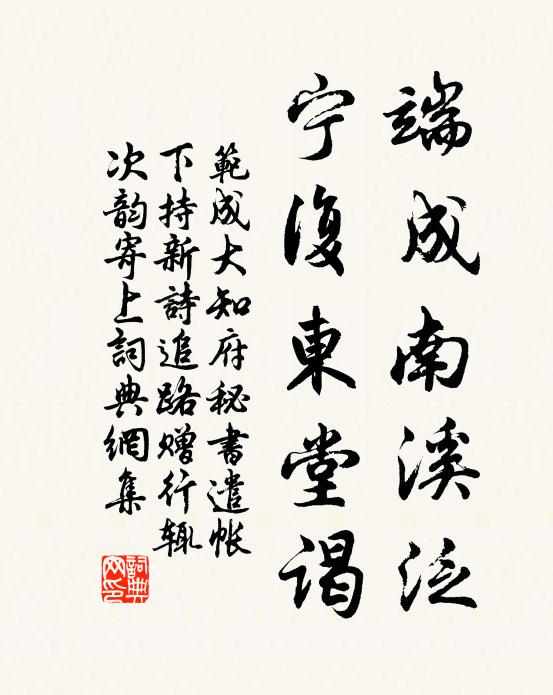 端成南溪泛
宁復東堂谒
範成大知府秘書遣帐
下持新詩追路赠行辄
次韵寄上詞典網集
詞典网印